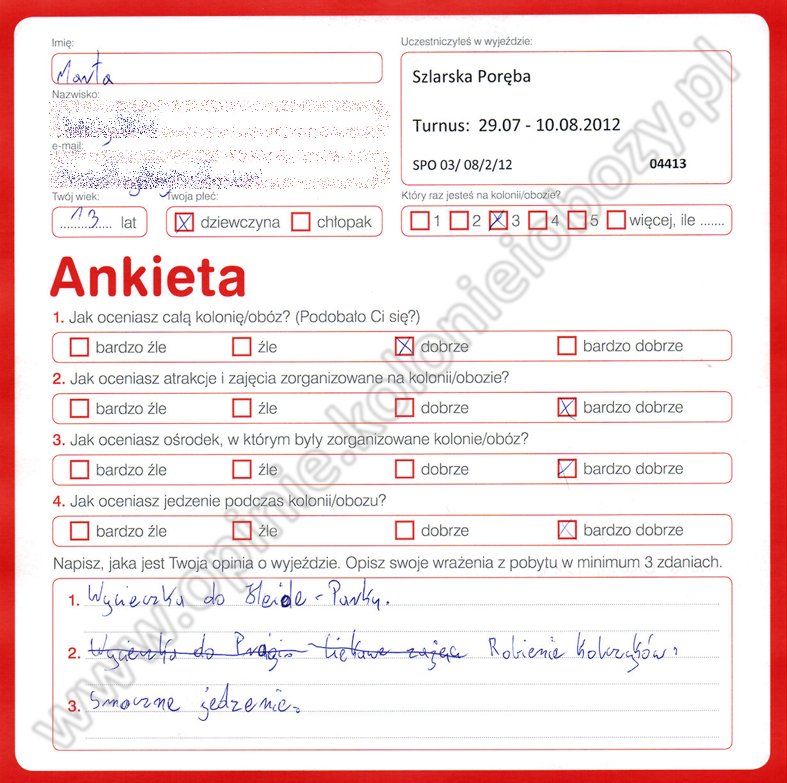 Imię:
Marta
Nazwisko:
e-mail:
Twój wiek:
13 lat
Twoja płeć:
dziewczyna chłopak
Uczestniczyłeś w wyjeździe:
Szlarska Poręba
Turnus: 29.07 - 10.08.2012
SPO 03/ 08/2/12 04413
Który raz jesteś na kolonii/obozie?
1 2 3 4 5 więcej, ile .......
Ankieta
1. Jak oceniasz całą kolonię/obóz? (Podobało Ci się?)
bardzo źle źle dobrze bardzo dobrze
2. Jak oceniasz atrakcje i zajęcia zorganizowane na kolonii/obozie?
bardzo źle źle dobrze bardzo dobrze
3. Jak oceniasz ośrodek, w którym były zorganizowane kolonie/obóz?
bardzo źle źle dobrze bardzo dobrze
4. Jak oceniasz jedzenie podczas kolonii/obozu?
bardzo źle źle dobrze bardzo dobrze
Napisz, jaka jest Twoja opinia o wyjeździe. Opisz swoje wrażenia z pobytu w minimum 3 zdaniach.
1. Wycieczka do - Parku.
2. Wycieczka do Ciekawe zajęcia Robienie kolczyków.
3. Smaczne jedzenie.
www.opinie.kolonieiobozy.pl